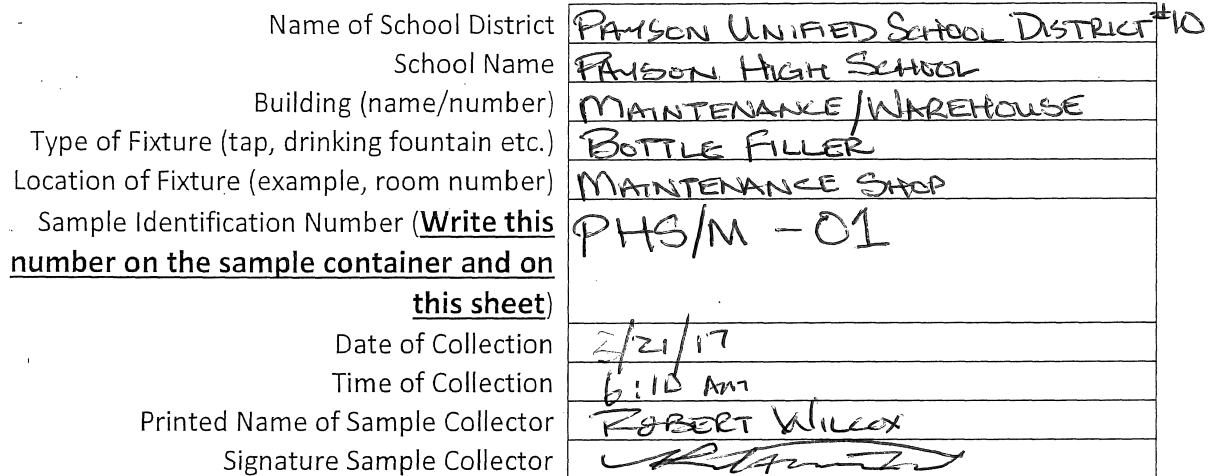 Name of School District PAYSON UNIFIED SCHOOL DISTRICT #10
School Name PAYSON HIGH SCHOOL
Building (name/number) MAINTENANCE/WAREHOUSE
Type of Fixture (tap, drinking fountain etc.) BOTTLE FILLER
Location of Fixture (example, room number) MAINTENANCE SHOP
Sample Identification Number (Write this PHS/M - 01
number on the sample container and on
this sheet)
Date of Collection 2/21/17
Time of Collection 6:10 AM
Printed Name of Sample Collector ROBERT WILCOX
Signature Sample Collector